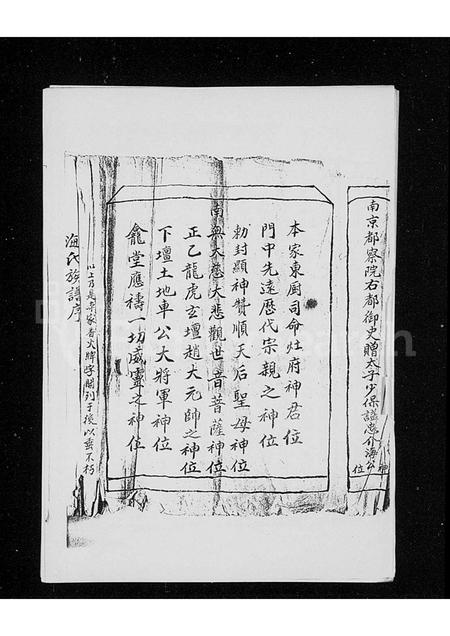 南京都察院右都御史贈太子少保諡忠介海公神位
本家東厨司命灶府神君位
門中先遠歷代宗親之神位
勅封顯神贊順天后聖母神位
南無大慈大悲觀世音菩薩神位
正乙龍虎玄壇趙大元帥之神位
下壇土地車公大將軍神位
龕堂應禱一切威靈之神位
以上乃是本家香火牌字開列于後以垂不朽
海氏族譜序